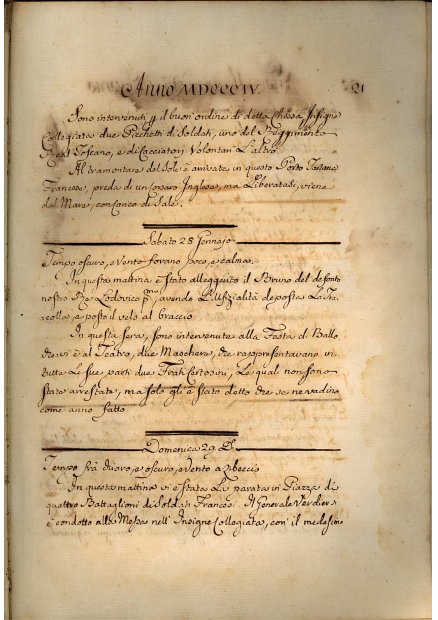 Anno MDCCCIV. 21
Sono intervenuti p il buon'ordine di detta Chiesa Insigne
Collegiata due Picchetti di Soldati, uno del Reggimento
Real Toscano, e di Cacciatori Volontari L'altro.
Al tramontare del Sole è arrivata in questo Porto Tartana
Francese, preda di un Corsaro Inglese, ma Liberatasi, viene
dal Mare, con Carico di Sale.
Sabato 28 Gennajo
Tempo oscuro, e vento forano poco, e calma.
In questa mattina è stato alleggerito il Bruno del defonto
nostro Re Lodovico p°, avendo L'Ufizialità deposta La Tra-
colla, e posto il velo al braccio.
In questa sera, sono intervenute alla Festa di Ballo,
che vi è al Teatro, due Maschere, che rappresentavano in
tutte Le sue parti due Frati Certosini, Le quali non sono
state arrestate, ma solo gli è stato detto che se ne vadino
come anno fatto.
Domenica 29. D°
Tempo frà chiaro, e oscuro, e vento a Libeccio
In questa mattina vi è stata La parata in Piazza di
quattro Battaglioni di Soldati Francesi. Il Generale Verdier s'
è condotto alla Messa nell'Insigne Collegiata, con'il medesimo